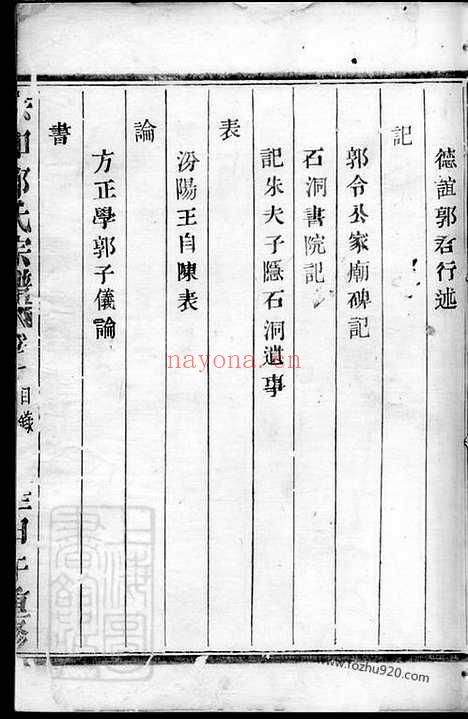 德誼郭君行述
記
郭令公家廟碑記
石洞書院記
記朱夫子隱石洞遺事
表
汾陽王自陳表
論
方正學郭子儀論
書
郭氏宗譜
卷一
目錄
重修
nayona.cn
www.fozhu920.com